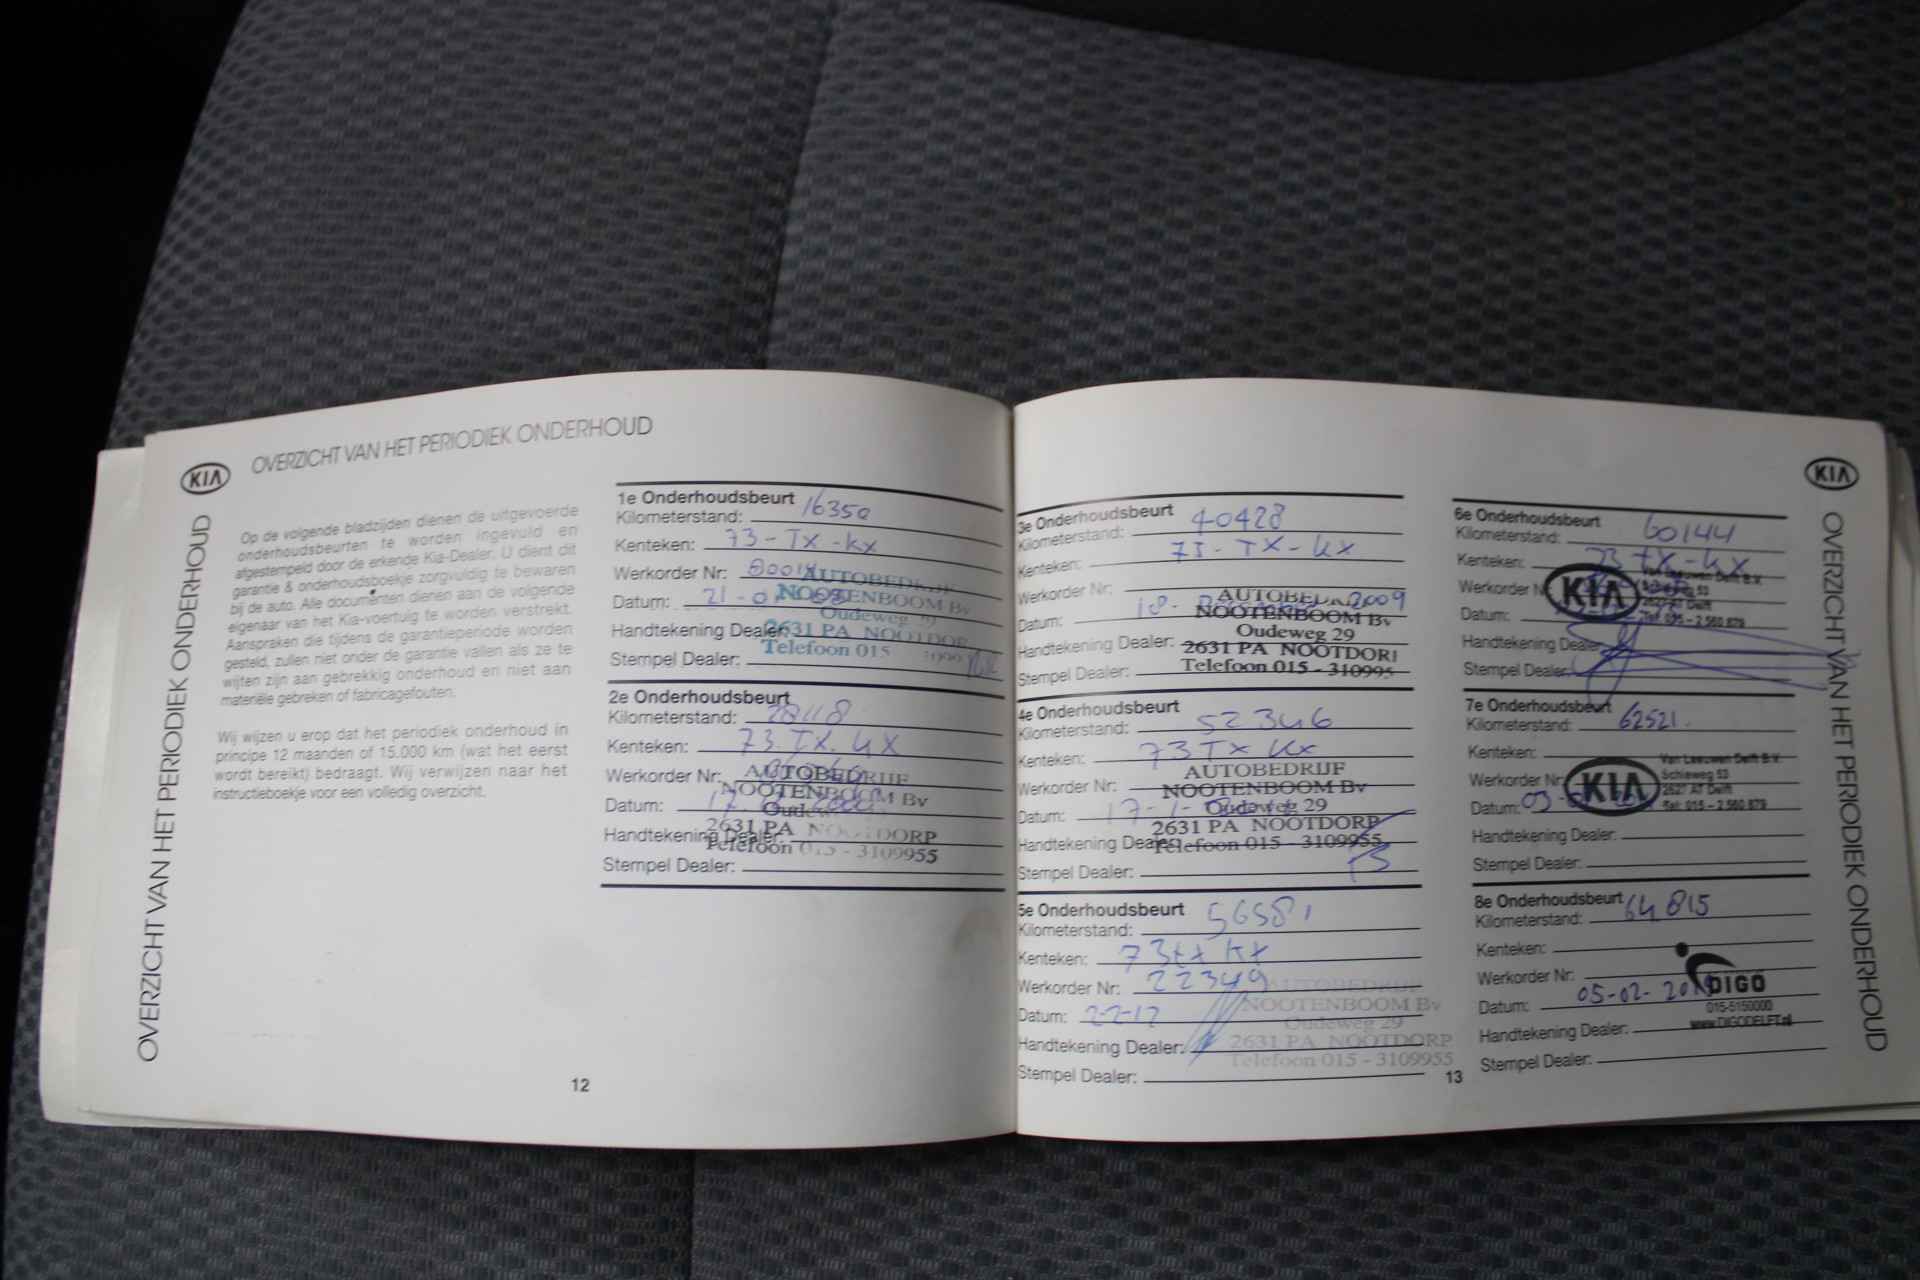 KIA
OVERZICHT VAN HET PERIODIEK ONDERHOUD
OVERZICHT VAN HET PERIODIEK ONDERHOUD
Op de volgende bladzijden dienen de uitgevoerde
onderhoudsbeurten te worden ingevuld en
afgestempeld door de erkende Kia-Dealer. U dient dit
garantie & onderhoudsboekje zorgvuldig te bewaren
bij de auto. Alle documenten dienen aan de volgende
eigenaar van het Kia-voertuig te worden verstrekt.
Aanspraken die tijdens de garantieperiode worden
gesteld, zullen niet onder de garantie vallen als ze te
wijten zijn aan gebrekkig onderhoud en niet aan
materiële gebreken of fabricagefouten.
Wij wijzen u erop dat het periodiek onderhoud in
principe 12 maanden of 15.000 km (wat het eerst
wordt bereikt) bedraagt. Wij verwijzen naar het
instructieboekje voor een volledig overzicht.
1e Onderhoudsbeurt
Kilometerstand: 16350
Kenteken: 73-TX-KX
Werkorder Nr:
AUTOBEDRIJF
Datum: 21-
NOOTENBOOM Bv
Oudeweg
Handtekening Dealer:
2631 PA NOOTDORP
Telefoon 015
Stempel Dealer:
2e Onderhoudsbeurt
Kilometerstand: 28118
Kenteken: 73.TX.KX
Werkorder Nr:
AUTOBEDRIJF
NOOTENBOOM Bv
Datum:
Oudeweg
2631 PA NOOTDORP
Handtekening Dealer:
Telefoon 015 - 3109955
Stempel Dealer:
12
3e Onderhoudsbeurt
Kilometerstand: 40428
Kenteken: 73-TX-KX
Werkorder Nr:
AUTOBEDRIJF
Datum: 2009
NOOTENBOOM Bv
Oudeweg 29
Handtekening Dealer:
2631 PA NOOTDORP
Stempel Dealer:
Telefoon 015 - 3109955
4e Onderhoudsbeurt
Kilometerstand: 52346
Kenteken: 73 TX KX
AUTOBEDRIJF
Werkorder Nr:
NOOTENBOOM Bv
Datum: 17-1-
Oudeweg 29
2631 PA NOOTDORP
Handtekening Dealer:
Telefoon 015 - 3109955
Stempel Dealer:
5e Onderhoudsbeurt
Kilometerstand: 56581
Kenteken: 73tx KX
Werkorder Nr: 22349
AUTOBEDRIJF
NOOTENBOOM Bv
Datum: 2-2-12
Oudeweg 29
Handtekening Dealer:
2631 PA NOOTDORP
Telefoon 015 - 3109955
Stempel Dealer:
13
KIA
OVERZICHT VAN HET PERIODIEK ONDERHOUD
6e Onderhoudsbeurt
Kilometerstand: 60144
Kenteken: 73 TX-KX
Van Leeuwen Delft B.V.
Werkorder Nr:
KIA
Schieweg 53
2627 AT Delft
Datum:
Tel: 015 - 2 560 879
Handtekening Dealer:
Stempel Dealer:
7e Onderhoudsbeurt
Kilometerstand: 62521.
Kenteken:
Van Leeuwen Delft B.V.
Werkorder Nr:
KIA
Schieweg 53
2627 AT Delft
Datum: 03-
Tel: 015 - 2 560 879
Handtekening Dealer:
Stempel Dealer:
8e Onderhoudsbeurt
Kilometerstand: 64.815
Kenteken:
Werkorder Nr:
DIGO
Datum: 05-02-
015-5150000
www.DIGODELFT.nl
Handtekening Dealer:
Stempel Dealer: